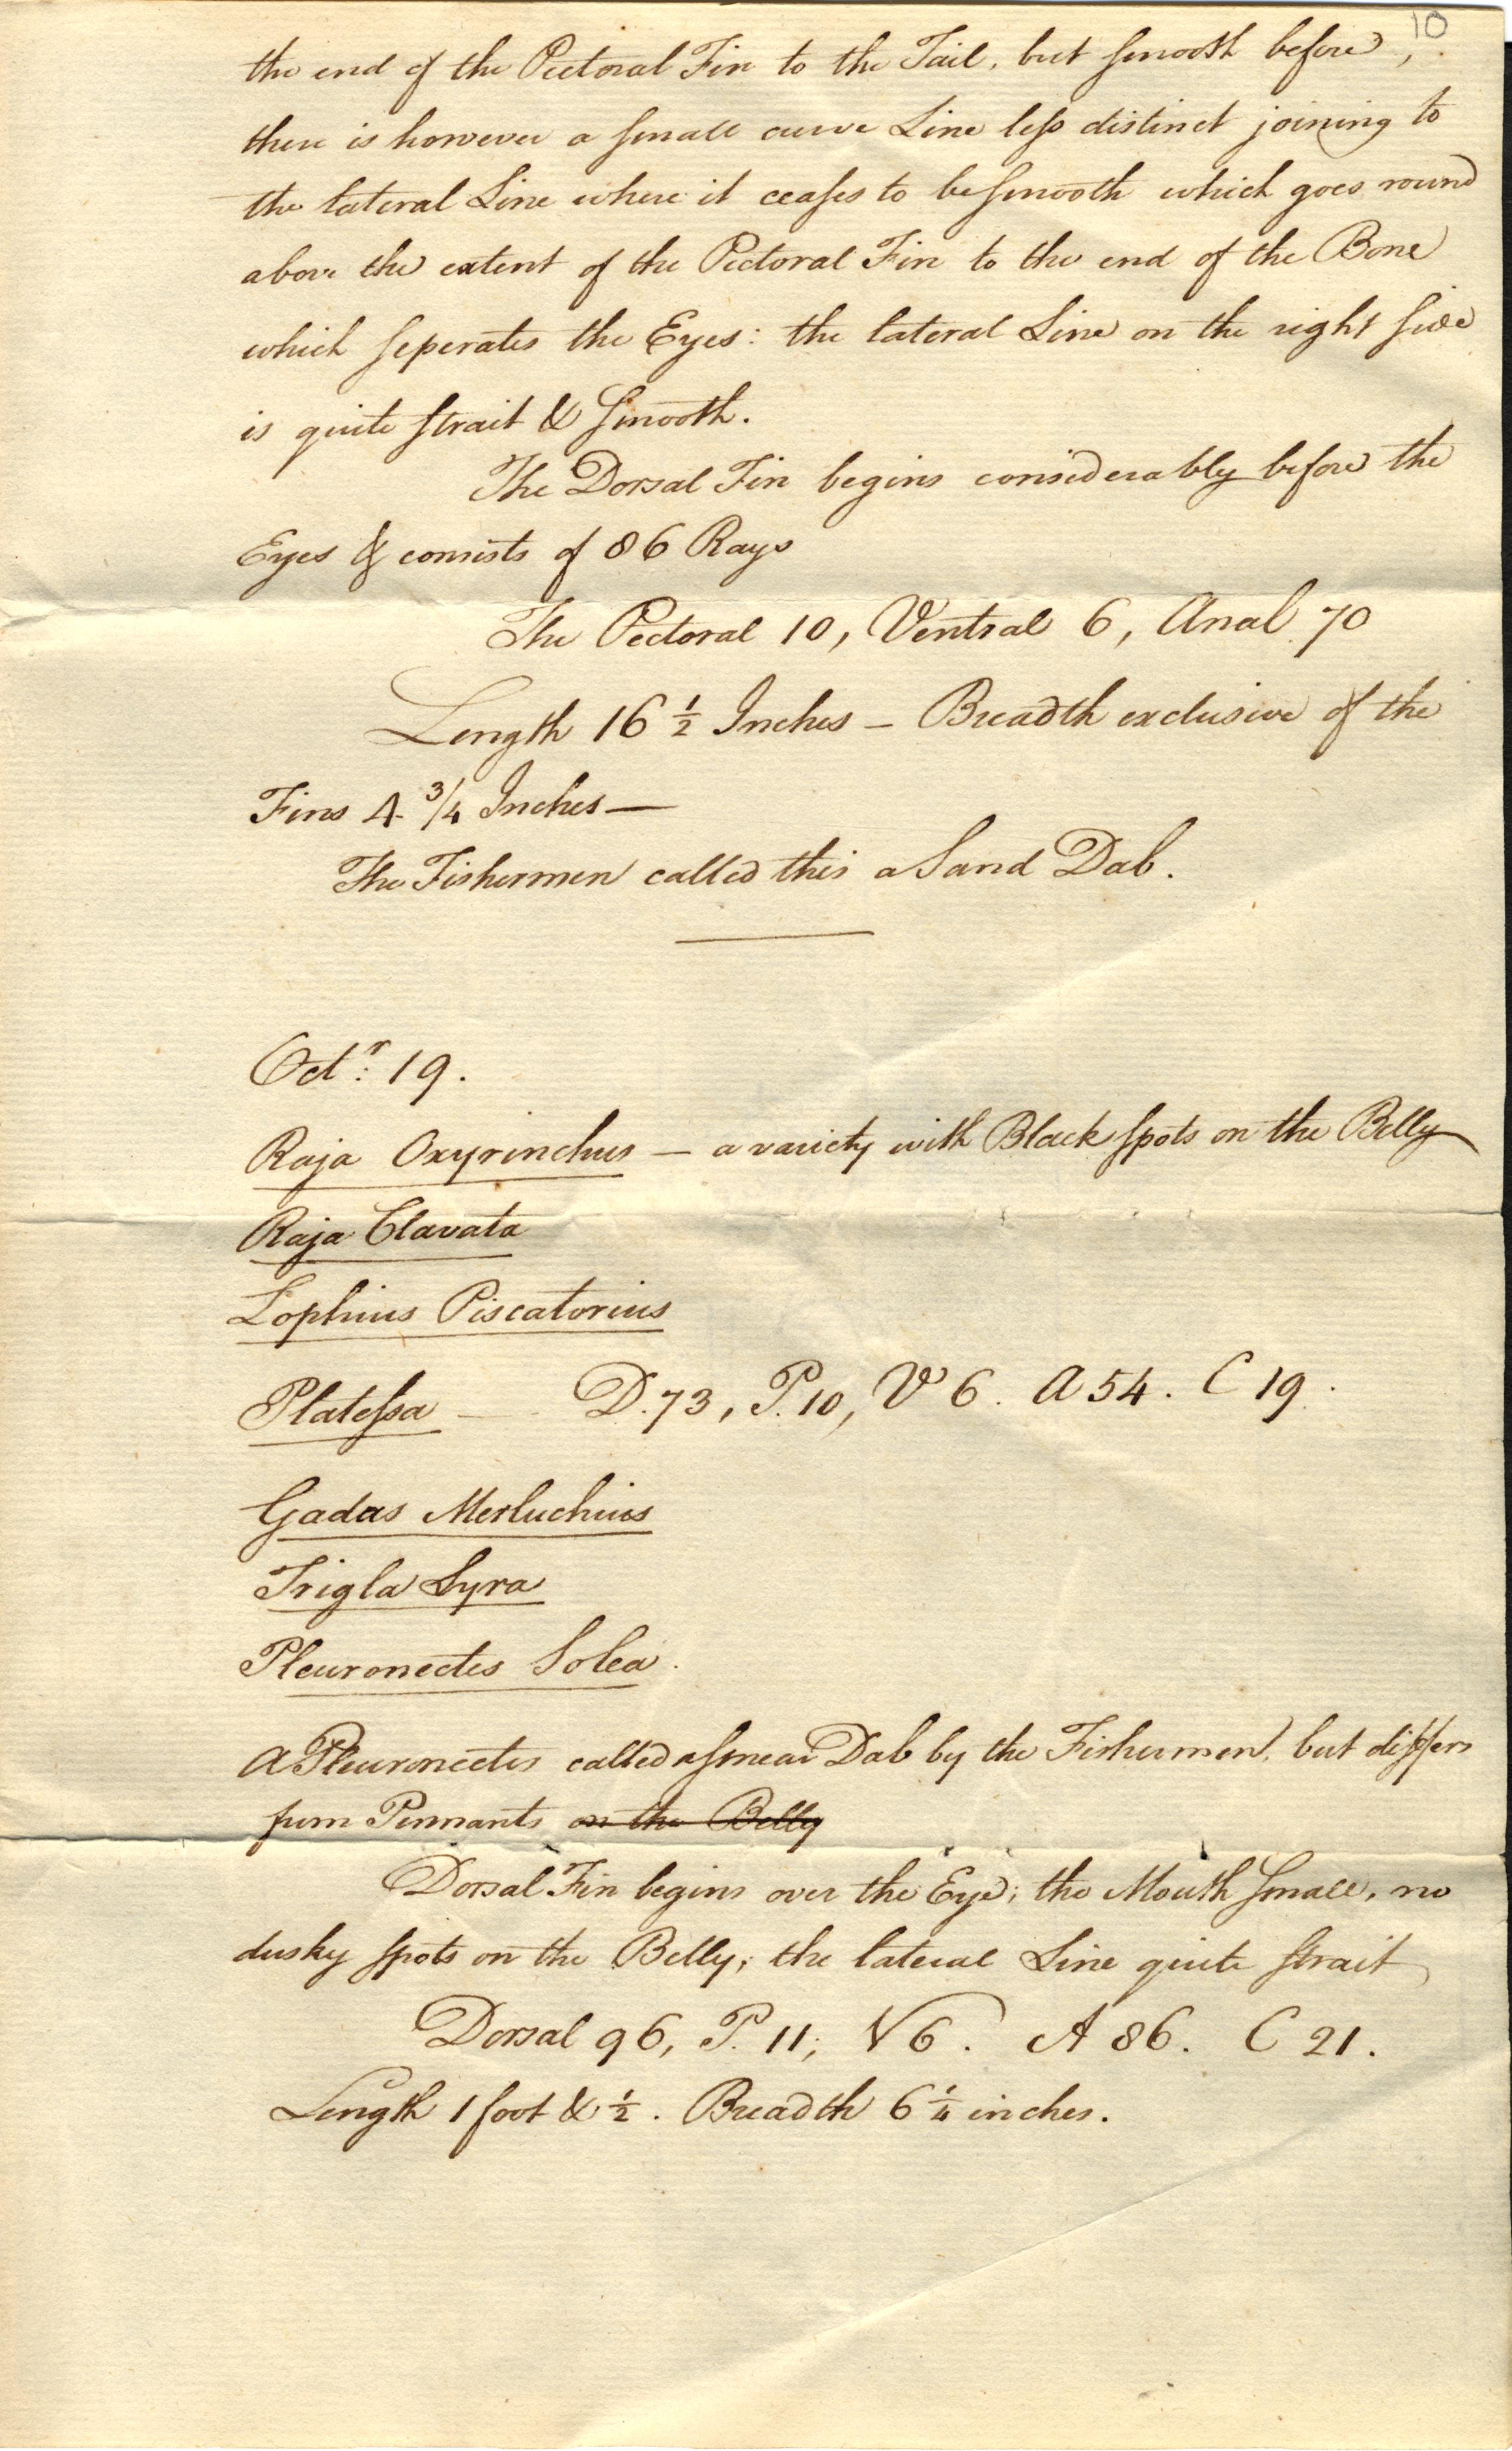 10
the end of the Pectoral Fin to the Tail, but smooth before,
there is however a small curve Line less distinct joining to
the lateral Line where it ceases to be smooth which goes round
above the extent of the Pectoral Fin to the end of the Bone
which seperates the Eyes: the lateral Line on the right side
is quite strait & smooth.
The Dorsal Fin begins considerably before the
Eyes & consists of 86 Rays
The Pectoral 10, Ventral 6, Anal 70
Length 16 1/2 Inches – Breadth exclusive of the
Fins 4 3/4 Inches —
The Fishermen called this a Sand Dab.
Octr. 19.
Raja Oxyrinchus — a variety with Black spots on the Belly
Raja Clavata
Lophius Piscatorius
Platessa — D.73, P.10, V 6. A 54. C 19.
Gadas Merluchius
Trigla Lyra
Pleuronectes Solea.
A Pleuronectes called a smear Dab by the Fishermen, but differs
from Pennants on the Belly
Dorsal Fin begins over the Eye; the Mouth small, no
dusky spots on the Belly; the lateral Line quite strait
Dorsal 96, P. 11; V 6. A 86. C 21.
Length 1 foot & 1/2. Breadth 6 1/4 inches.